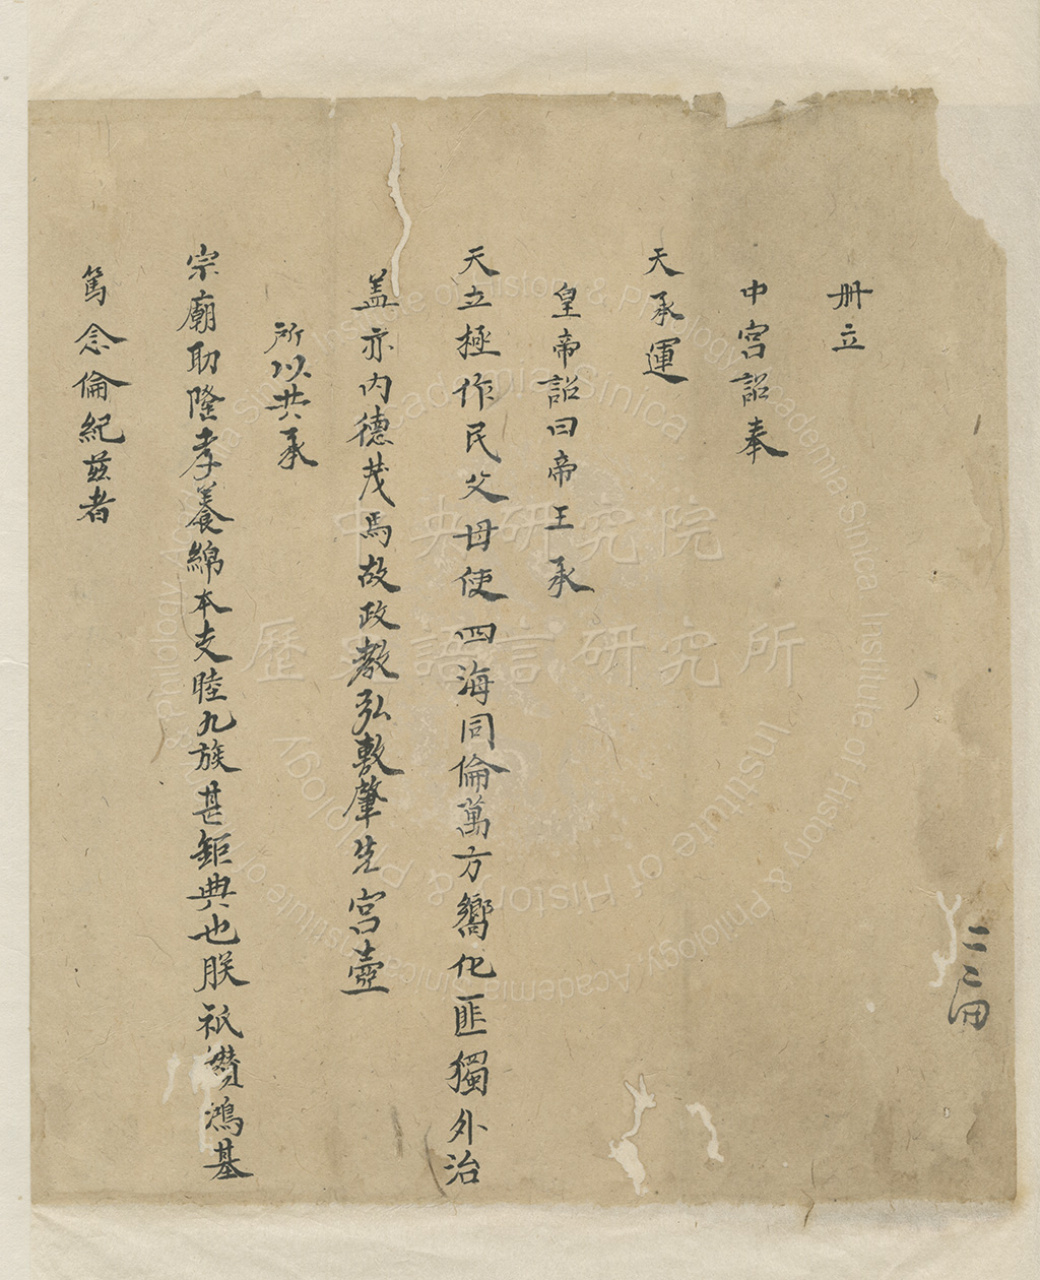 冊立
中宮詔奉
天承運
皇帝詔曰帝王承
天立極作民父母使四海同倫萬方嚮化匪獨外治
盖亦內德茂焉故政教弘敷肇先宮壼
所以共承
宗廟助隆孝養綿本支睦九族甚鉅典也朕祇纘鴻基
篤念倫紀茲者
中央研究院
歷史語言研究所
Institute of History & Philology Academia Sinica